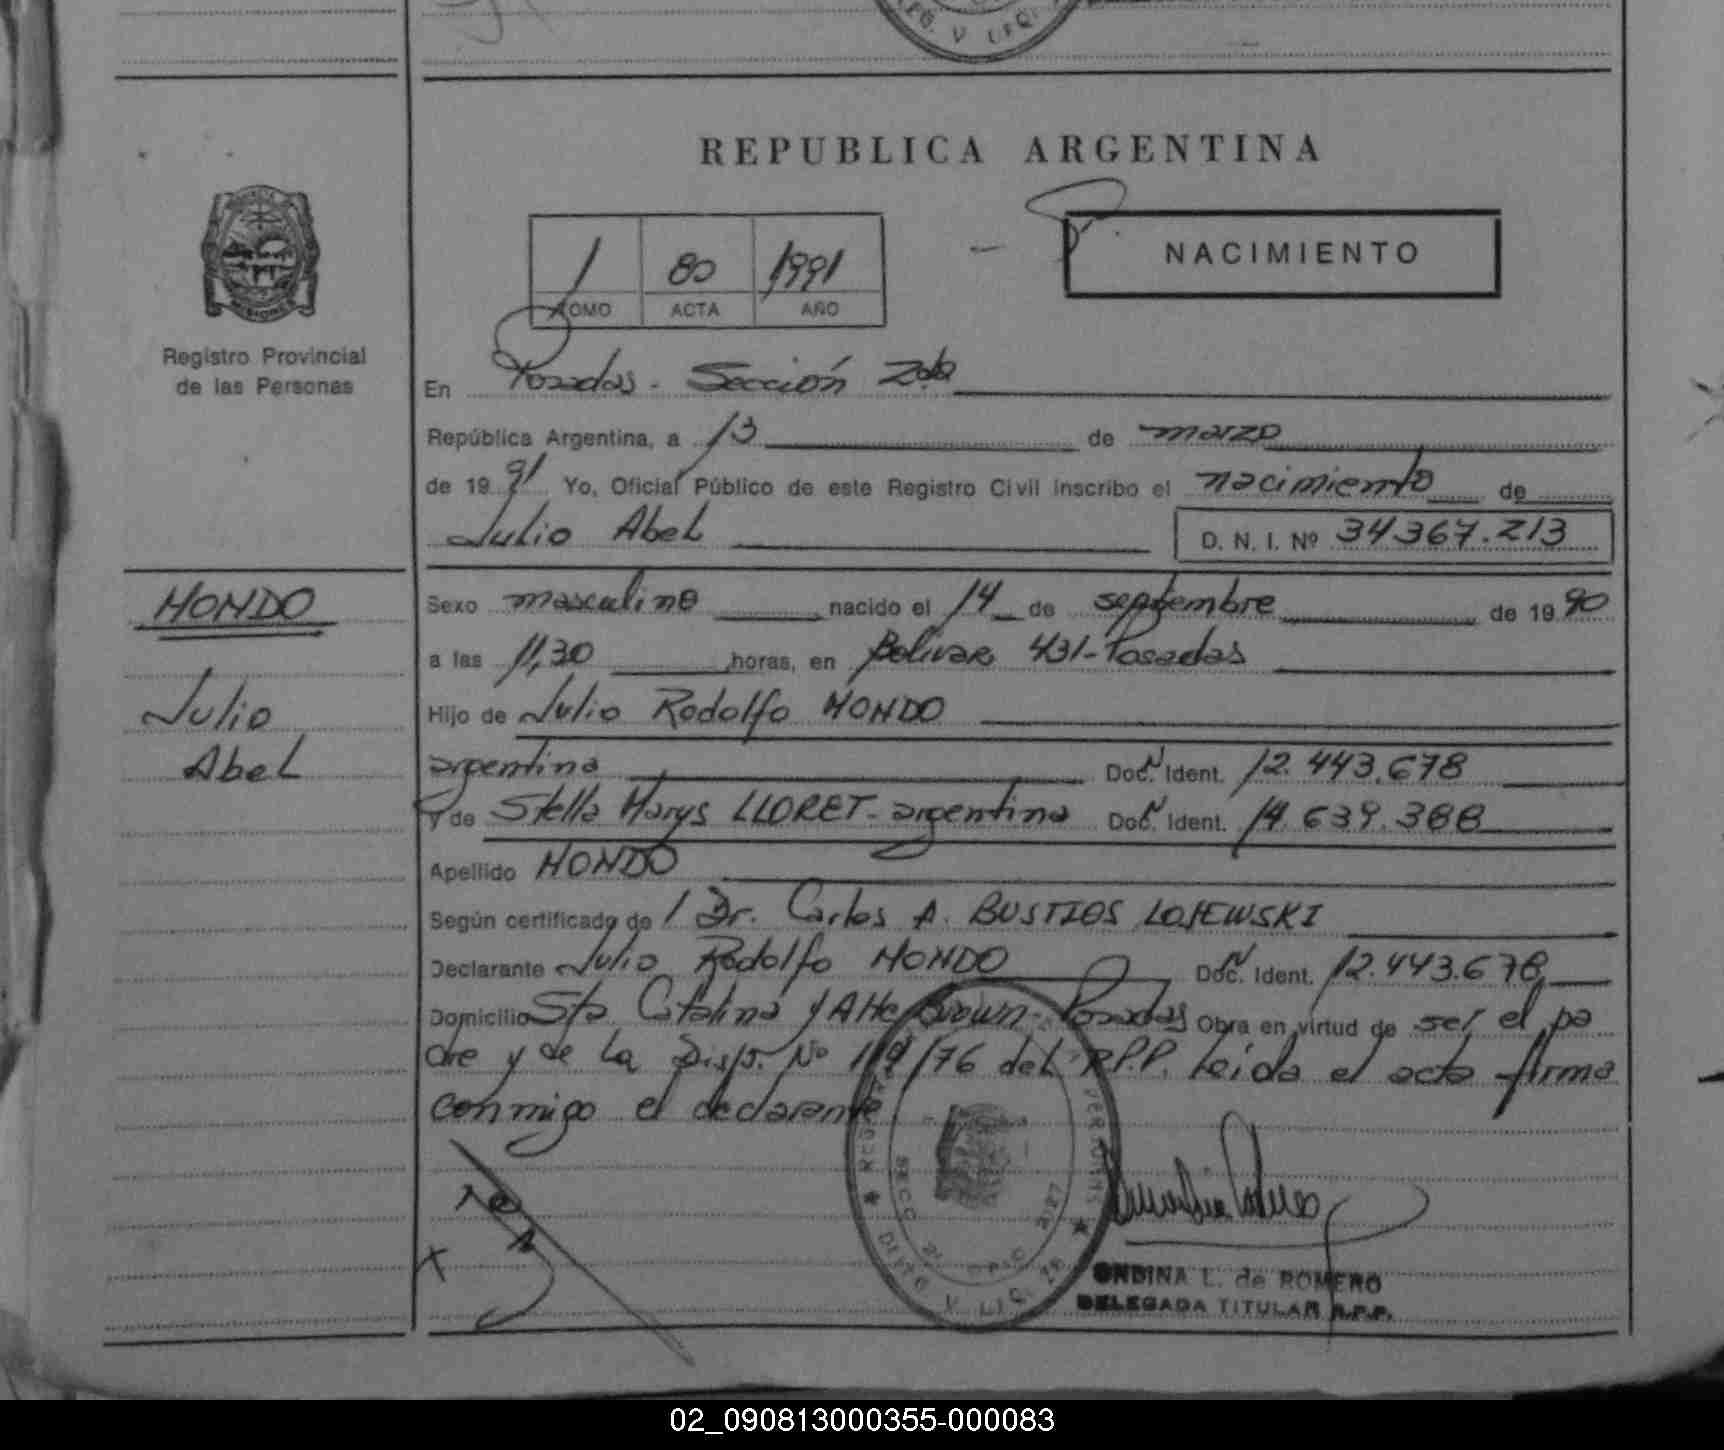 REG. V LEQ.
REPUBLICA ARGENTINA
1 80 1991
TOMO ACTA AÑO
NACIMIENTO
Registro Provincial
de las Personas
En Posadas - Sección 2da
República Argentina, a 13 de marzo
de 19 91 Yo, Oficial Público de este Registro Civil inscribo el nacimiento de
Julio Abel D. N. I. Nº 34367.213
HONDO
Julio
Abel
Sexo masculino nacido el 14 de septiembre de 19 90
a las 11,30 horas, en Bolivar 431-Posadas
Hijo de Julio Rodolfo HONDO
argentina Doc. Ident. 12.443.678
y de Stella Marys LLORET - argentina Doc. Ident. 14.639.388
Apellido HONDO
Según certificado de / Dr. Carlos A. BUSTIOS LOJEWSKI
Declarante Julio Rodolfo HONDO Doc. Ident. 12.443.678
Domicilio Sta Catalina y Alte Brown - Posadas Obra en virtud de ser el pa
dre y de la Disp. Nº /76 del R.P.P. Leida el acta firma
conmigo el declarante
SECC 2ª
ONDINA L. de ROMERO
DELEGADA TITULAR R.P.P.
02_090813000355-000083